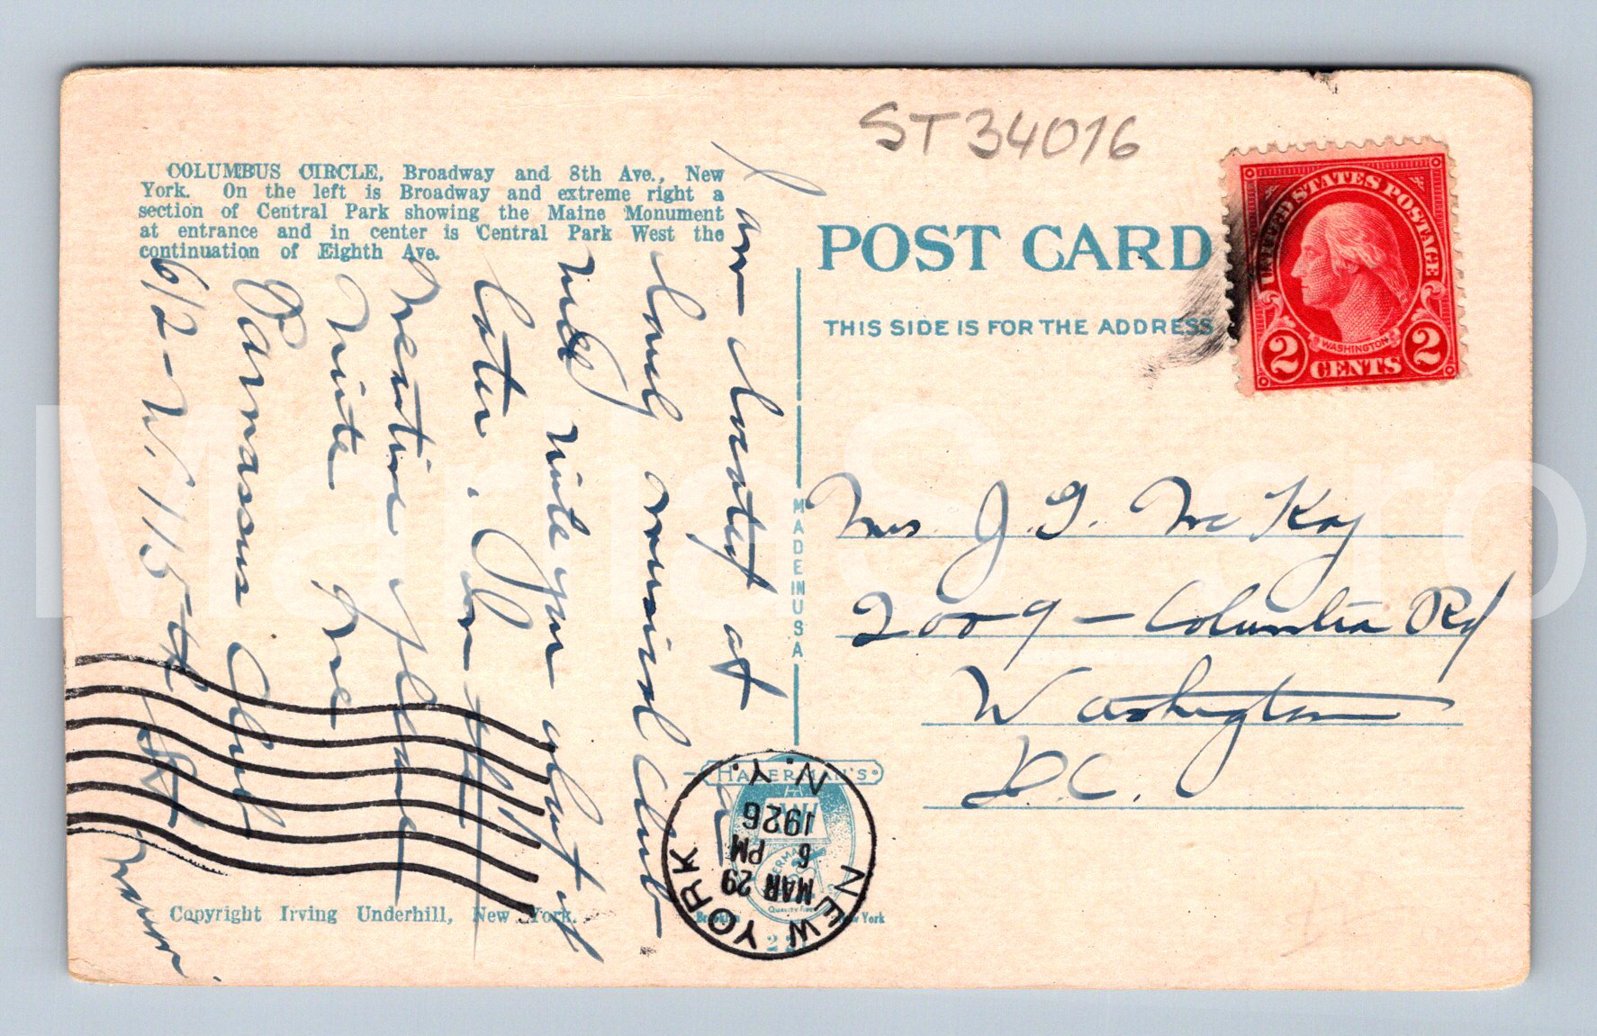 ST34016
COLUMBUS CIRCLE, Broadway and 8th Ave., New
York. On the left is Broadway and extreme right a
section of Central Park showing the Maine Monument
at entrance and in center is Central Park West the
continuation of Eighth Ave.
POST CARD
THIS SIDE IS FOR THE ADDRESS
UNITED STATES POSTAGE
WASHINGTON
2 CENTS 2
I
am located at
lovely musical Club
will write you about it
later.
mention please
Write me
Parnassus Club
612-W. 115-th St
MADE IN USA
Mrs J. G. McKay
2009-Columbia Rd
Washington
D.C.
HABERMAN'S
NEW YORK N.Y.
MAR 29
6 PM
1926
Copyright Irving Underhill, New York.
Brooklyn New York
MariaS.pro